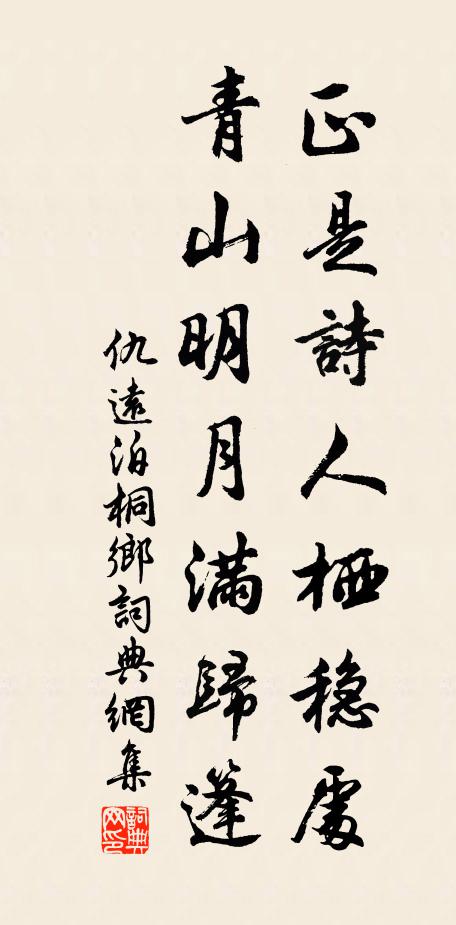 正是詩人栖稳處
青山明月満歸篷
仇遠泊桐鄉詞典網集
詞典网印